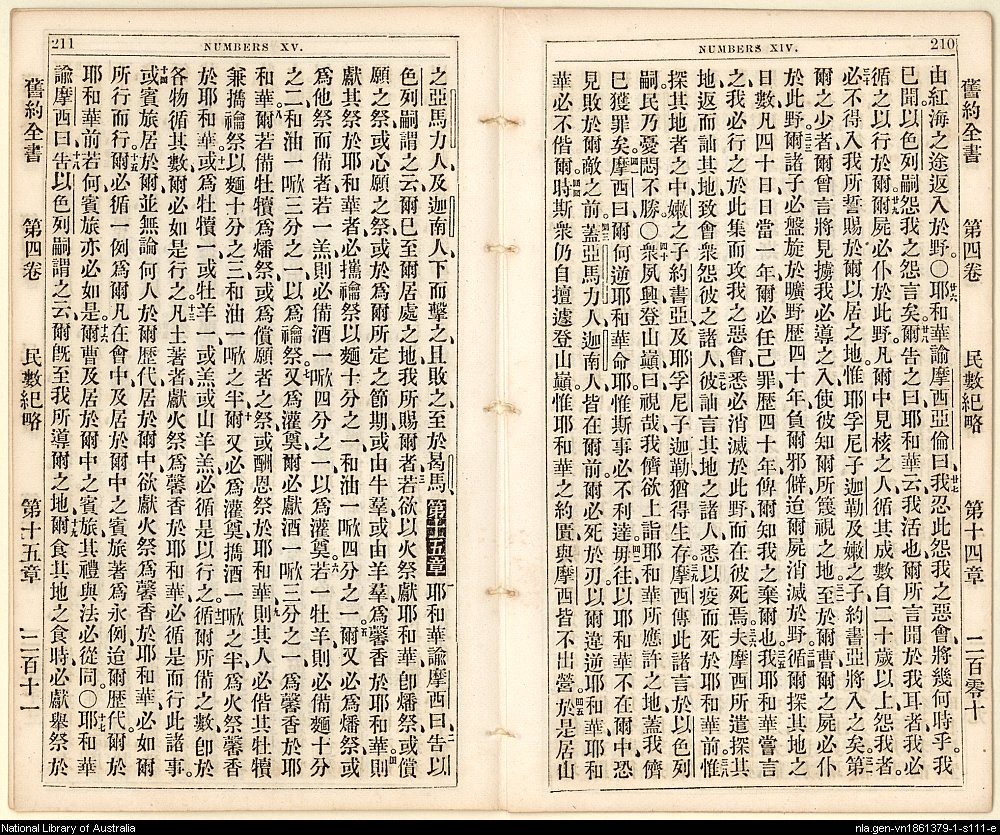 210
NUMBERS XIV.
舊約全書 第四卷 民數紀略 第十四章 二百零十
由紅海之途返入於野。〇廿六耶和華諭摩西亞倫曰、廿七我忍此怨我之惡會、將幾何時乎。我
已聞以色列嗣怨我之怨言矣。廿八爾告之曰、耶和華云、我活也、爾所言聞於我耳者、我必
循之以行於爾。廿九爾屍必仆於此野。凡爾中見核之人、循其成數、自二十歲以上怨我者。三十
必不得入我所誓賜於爾以居之地、惟耶孚尼子迦勒、及嫩之子約書亞將入之矣。三一第
爾之少者、爾曾言將見擄、我必導之入、使彼知爾所蔑視之地。三二至於爾曹、爾之屍必仆
於此野。三三爾諸子必盤旋於曠野、歷四十年、負爾邪僻、迨爾屍消滅於野。三四循爾探其地之
日數、凡四十日、日當一年、爾必任己罪、歷四十年、俾爾知我之棄爾也。三五我耶和華嘗言
之、我必行之於此集而攻我之惡會、悉必消滅於此野、而在彼死焉。三六夫摩西所遣探其
地、返而訕其地、致會衆怨彼之諸人、三七彼訕言其地之諸人、悉以疫而死於耶和華前。三八惟
探其地者之中、嫩之子約書亞、及耶孚尼子迦勒、猶得生存。三九摩西傳此諸言於以色列
嗣、民乃憂悶不勝。〇四十衆夙興、登山巔曰、視哉、我儕欲上詣耶和華所應許之地、蓋我儕
已獲罪矣。四一摩西曰、爾何逆耶和華命耶、惟斯事必不利達。四二毋往、以耶和華不在爾中、恐
見敗於爾敵之前。四三蓋亞馬力人、迦南人、皆在爾前、爾必死於刃。以爾違逆耶和華、耶和
華必不偕爾。四四時斯衆仍自擅遽登山巔。惟耶和華之約匱、與摩西、皆不出營。四五於是居山
211
NUMBERS XV.
之亞馬力人、及迦南人、下而擊之、且敗之、至於曷馬、 第十五章 一耶和華諭摩西曰、二告以
色列嗣、謂之云、爾已至爾居處之地、我所賜爾者、三若欲以火祭獻耶和華、卽燔祭、或償
願之祭、或心願之祭、或於爲爾所定之節期、或由牛羣、或由羊羣、爲馨香於耶和華、四則
獻其祭於耶和華者、必攜禴祭、以麵十分之一、和油一㗶四分之一。五爾又必爲燔祭、或
爲他祭而備者、若一羔、則必備酒一㗶四分之一、以爲灌奠。六若一牡羊、則必備麵十分
之二、和油一㗶三分之一、以爲禴祭。七又爲灌奠、爾必獻酒一㗶三分之一、爲馨香於耶
和華。八爾若備牡犢爲燔祭、或爲償願者之祭、或酬恩祭於耶和華、九則其人必偕其牡犢、
兼攜禴祭、以麵十分之三、和油一㗶之半。十爾又必爲灌奠、攜酒一㗶之半、爲火祭馨香
於耶和華。十一或爲牡犢一、或牡羊一、或羔、或山羊羔、必循是以行之。十二循爾所備之數、卽於
各物循其數、爾必如是行之。十三凡土著者、獻火祭爲馨香於耶和華、必循是而行此諸事。
十四或賓旅居於爾、並無論何人於爾歷代、居於爾中、欲獻火祭、爲馨香於耶和華、必如爾
所行而行。十五爾必循一例、爲爾凡在會中、及居於爾中之賓旅、著爲永例、迨爾歷代。爾於
耶和華前若何、賓旅亦必如是。十六爾曹及居於爾中之賓旅、其禮與法必從同。〇十七耶和華
諭摩西曰、十八告以色列嗣、謂之云、爾旣至我所導爾之地、十九爾食其地之食時、必獻舉祭於
舊約全書 第四卷 民數紀略 第十五章 二百十一
National Library of Australia
nla.gen-vn1861379-1-s111-e